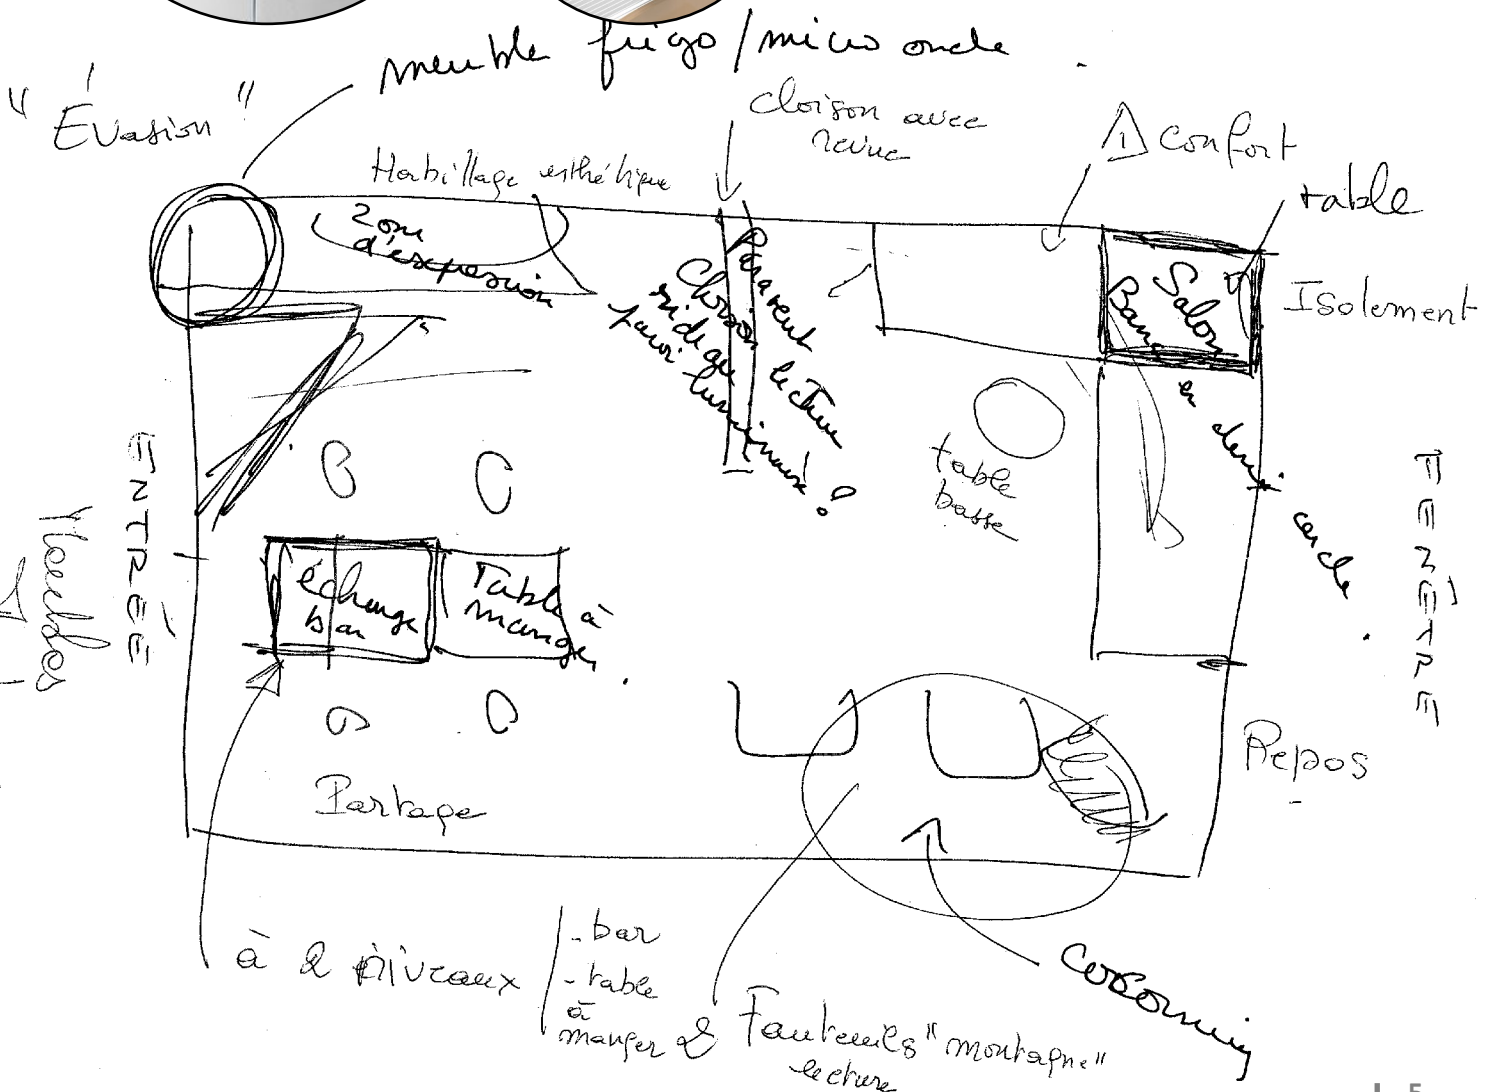 meuble frigo / micro onde
"Évasion"
cloison avec
revue
⚠ confort
table
Habillage esthétique
Zone
d'expression
Paravent
Cloison lecture
rideau
paroi luminaire ?
Salon
Banc
en demi cercle.
Isolement
table
basse
ENTRÉE
FENÊTRE
échange
bar
Table à
manger
Partage
Repos
à 2 niveaux
- bar
- table
à
manger
2 Fauteuils "montagne"
lecture
Cocooning